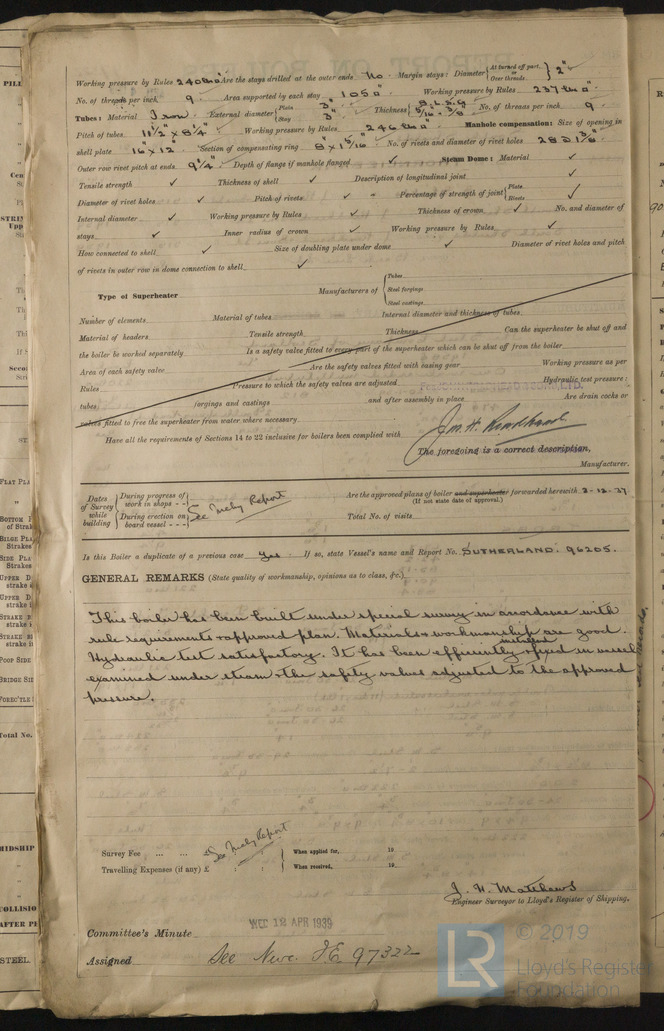 Working pressure by Rules 240 lbs □" Are the stays drilled at the outer ends No. Margin stays: Diameter { At turned off part, or Over threads 2"
No. of threads per inch 9. Area supported by each stay 105 □" Working pressure by Rules 237 lbs □"
Tubes: Material Iron External diameter { Plain 3" Stay 3" Thickness { 8 L.S.G 5/16 - 3/8 No. of threads per inch 9.
Pitch of tubes 11½" x 8¼" Working pressure by Rules 246 lbs □" Manhole compensation: Size of opening in
shell plate 16" x 12" Section of compensating ring 8" x 1 5/16" No. of rivets and diameter of rivet holes 28 @ 1 3/16"
Outer row rivet pitch at ends 9¼" Depth of flange if manhole flanged ✓ Steam Dome: Material ✓
Tensile strength ✓ Thickness of shell ✓ Description of longitudinal joint ✓
Diameter of rivet holes ✓ Pitch of rivets ✓ Percentage of strength of joint { Plate Rivets ✓
Internal diameter ✓ Working pressure by Rules ✓ Thickness of crown ✓ No. and diameter of
stays ✓ Inner radius of crown ✓ Working pressure by Rules ✓
How connected to shell ✓ Size of doubling plate under dome ✓ Diameter of rivet holes and pitch
of rivets in outer row in dome connection to shell ✓
Type of Superheater Manufacturers of { Tubes Steel forgings Steel castings
Number of elements Material of tubes Internal diameter and thickness of tubes
Material of headers Tensile strength Thickness Can the superheater be shut off and
the boiler be worked separately Is a safety valve fitted to every part of the superheater which can be shut off from the boiler
Area of each safety valve Are the safety valves fitted with easing gear Working pressure as per
Rules Pressure to which the safety valves are adjusted Hydraulic test pressure:
tubes forgings and castings and after assembly in place Are drain cocks or
valves fitted to free the superheater from water where necessary
Have all the requirements of Sections 14 to 22 inclusive for boilers been complied with
The foregoing is a correct description,
Manufacturer.
Dates of Survey while building { During progress of work in shops - - During erection on board vessel - - - } See Mchy Report
Are the approved plans of boiler and superheater forwarded herewith 2-12-37.
(If not state date of approval.)
Total No. of visits
Is this Boiler a duplicate of a previous case Yes. If so, state Vessel's name and Report No. SUTHERLAND. 96205.
GENERAL REMARKS (State quality of workmanship, opinions as to class, &c.)
This boiler has been built under special survey in accordance with
rule requirements & approved plan. Materials & workmanship are good.
Hydraulic test satisfactory. It has been efficiently fixed in vessel
examined under steam & the safety valves adjusted to the approved
pressure.
Survey Fee ... ... £ See Mchy Report When applied for, 19
Travelling Expenses (if any) £ When received, 19
J. H. Matthews
Engineer Surveyor to Lloyd's Register of Shipping.
Committee's Minute WED 12 APR 1939
Assigned See Nwc. F.E. 97322
LR © 2019
Lloyd's Register
Foundation